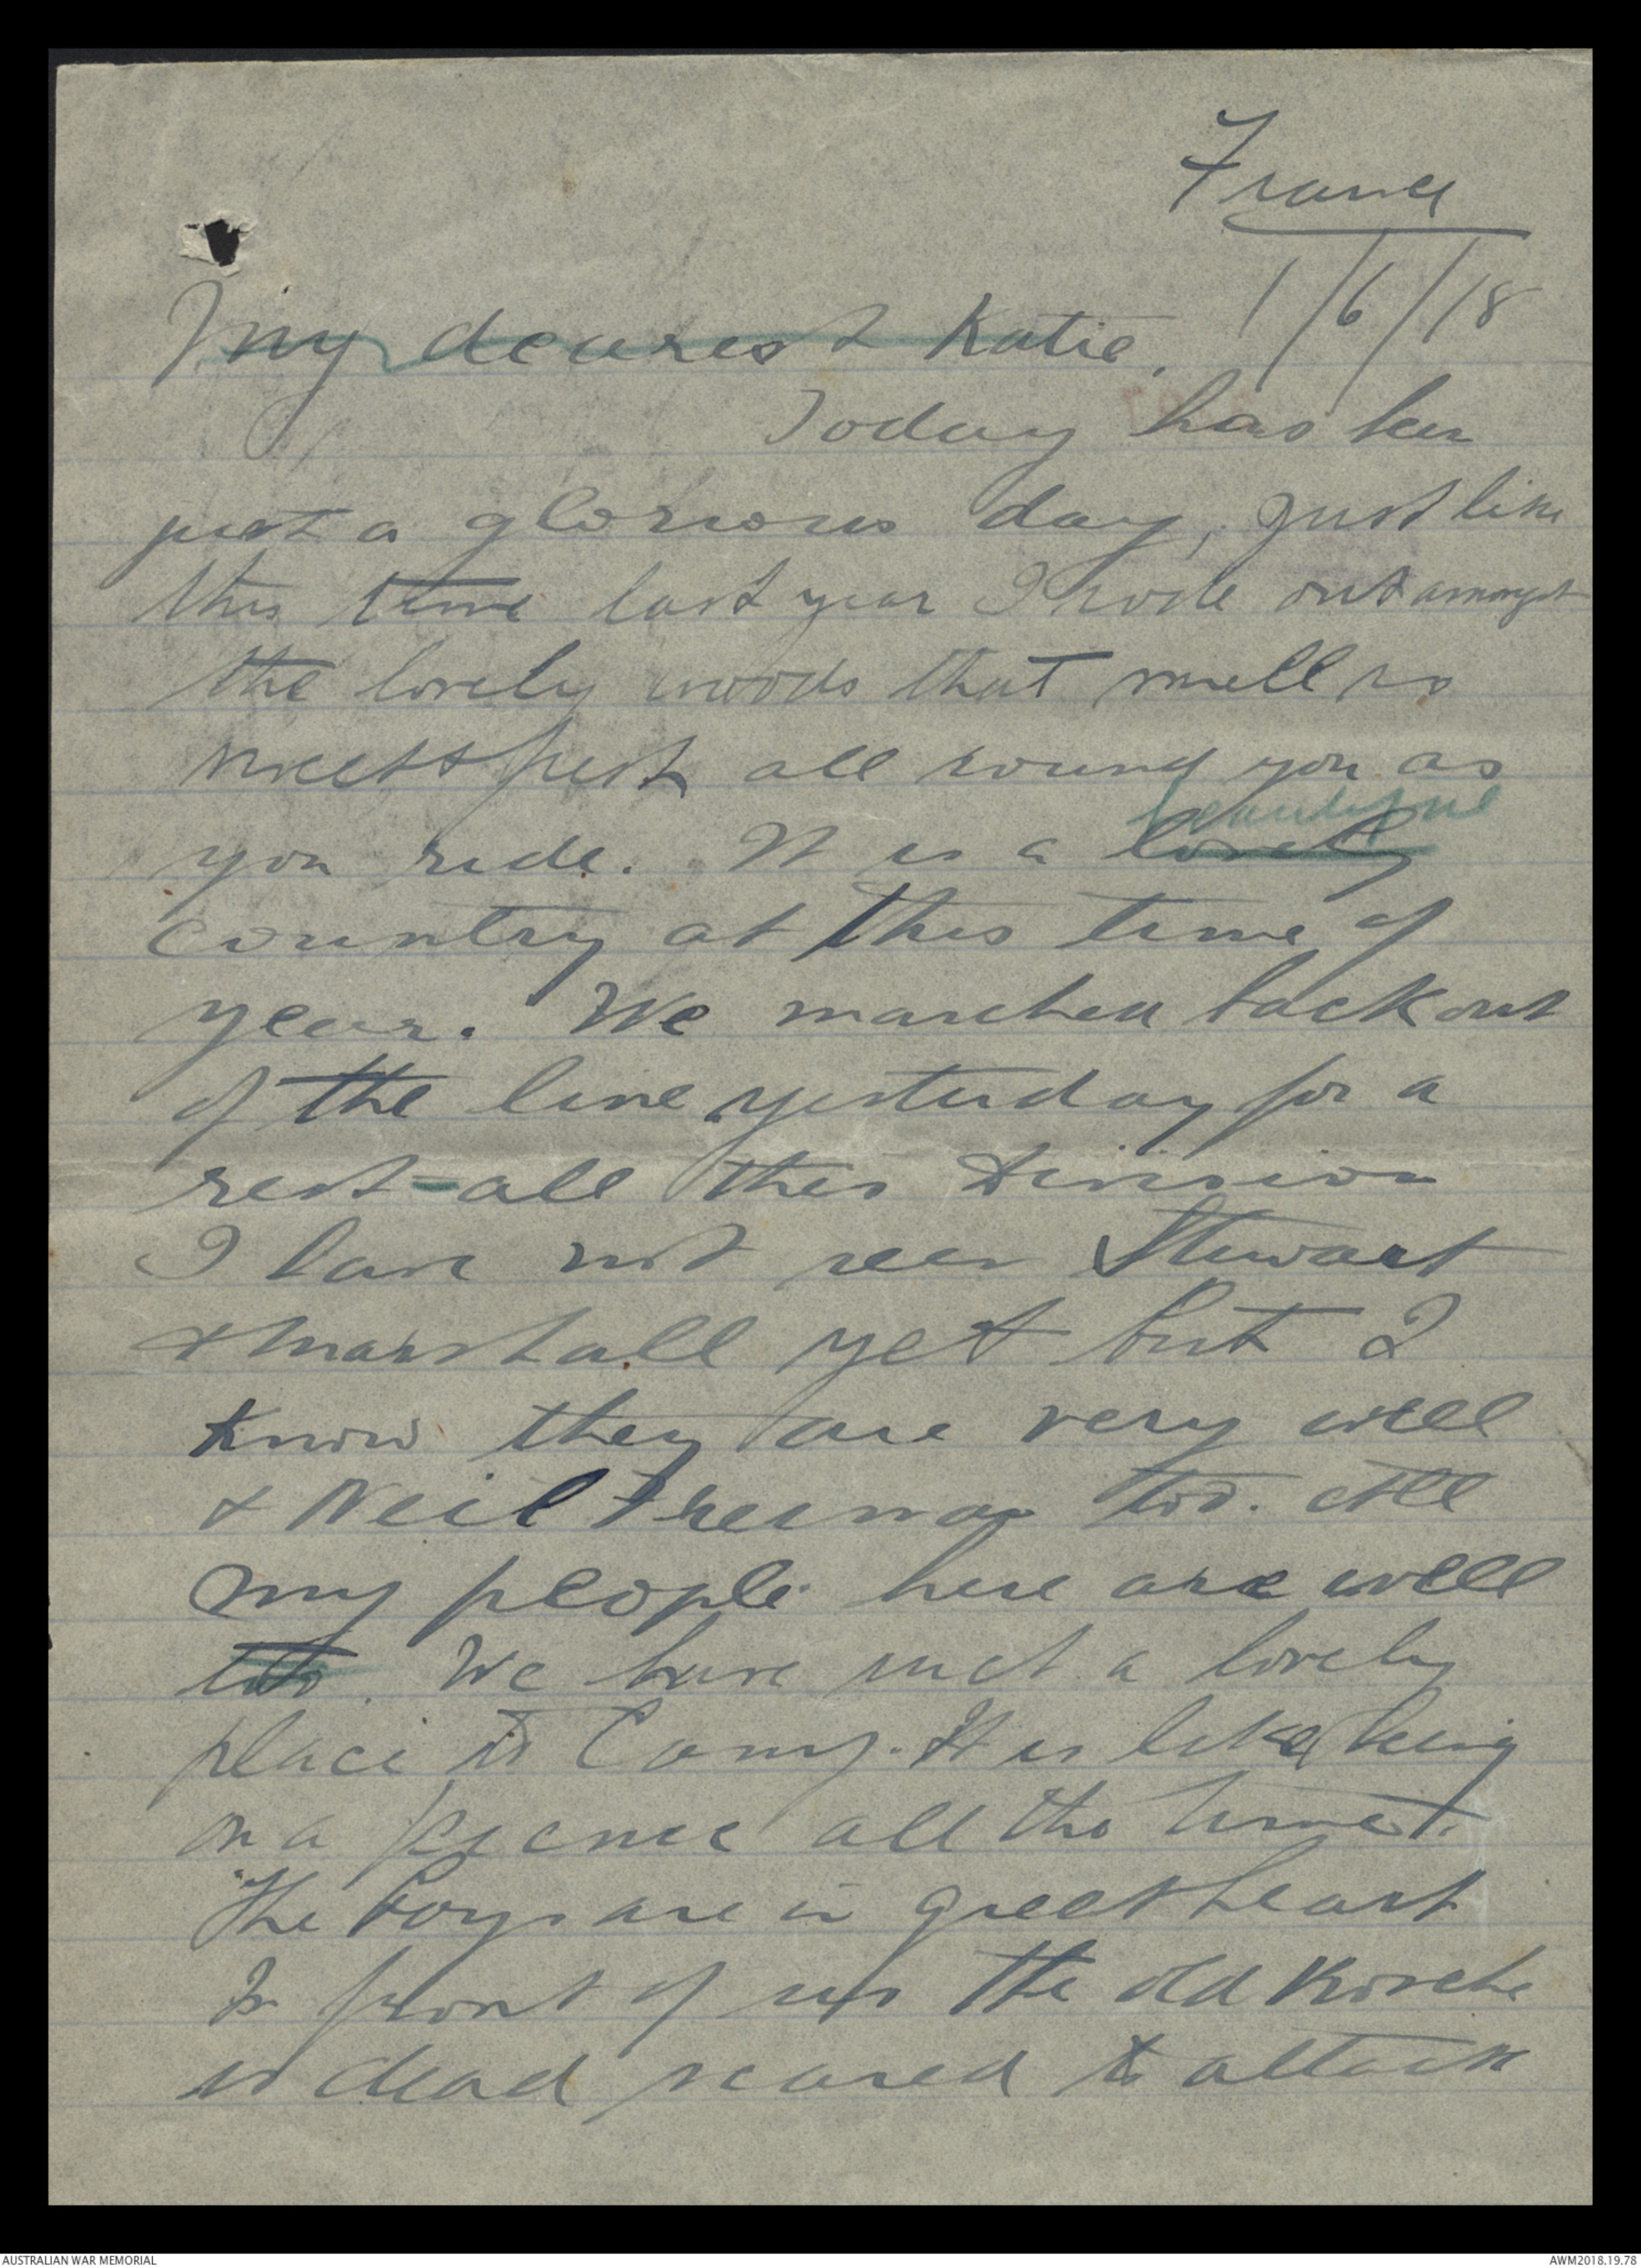 France
1/6/18
My dearest Katie,
Today has been
just a glorious day, just like
this time last year I rode out amongst
the lovely woods that smell so
sweet & fresh all round you as
beautiful
you ride. It is a lovely
country at this time of
year. We marched back out
of the line yesterday for a
rest - all this Division
I have not seen Stewart
& Marshall yet but I
know they are very well
& Neil Freeman too. All
my people here are well
too. We have such a lovely
place to Camp. It is like being
on a picnic all the time.
The boys are in great heart
In front of us the old Bosche
is dead scared to attack
AUSTRALIAN WAR MEMORIAL
AWM2018.19.78